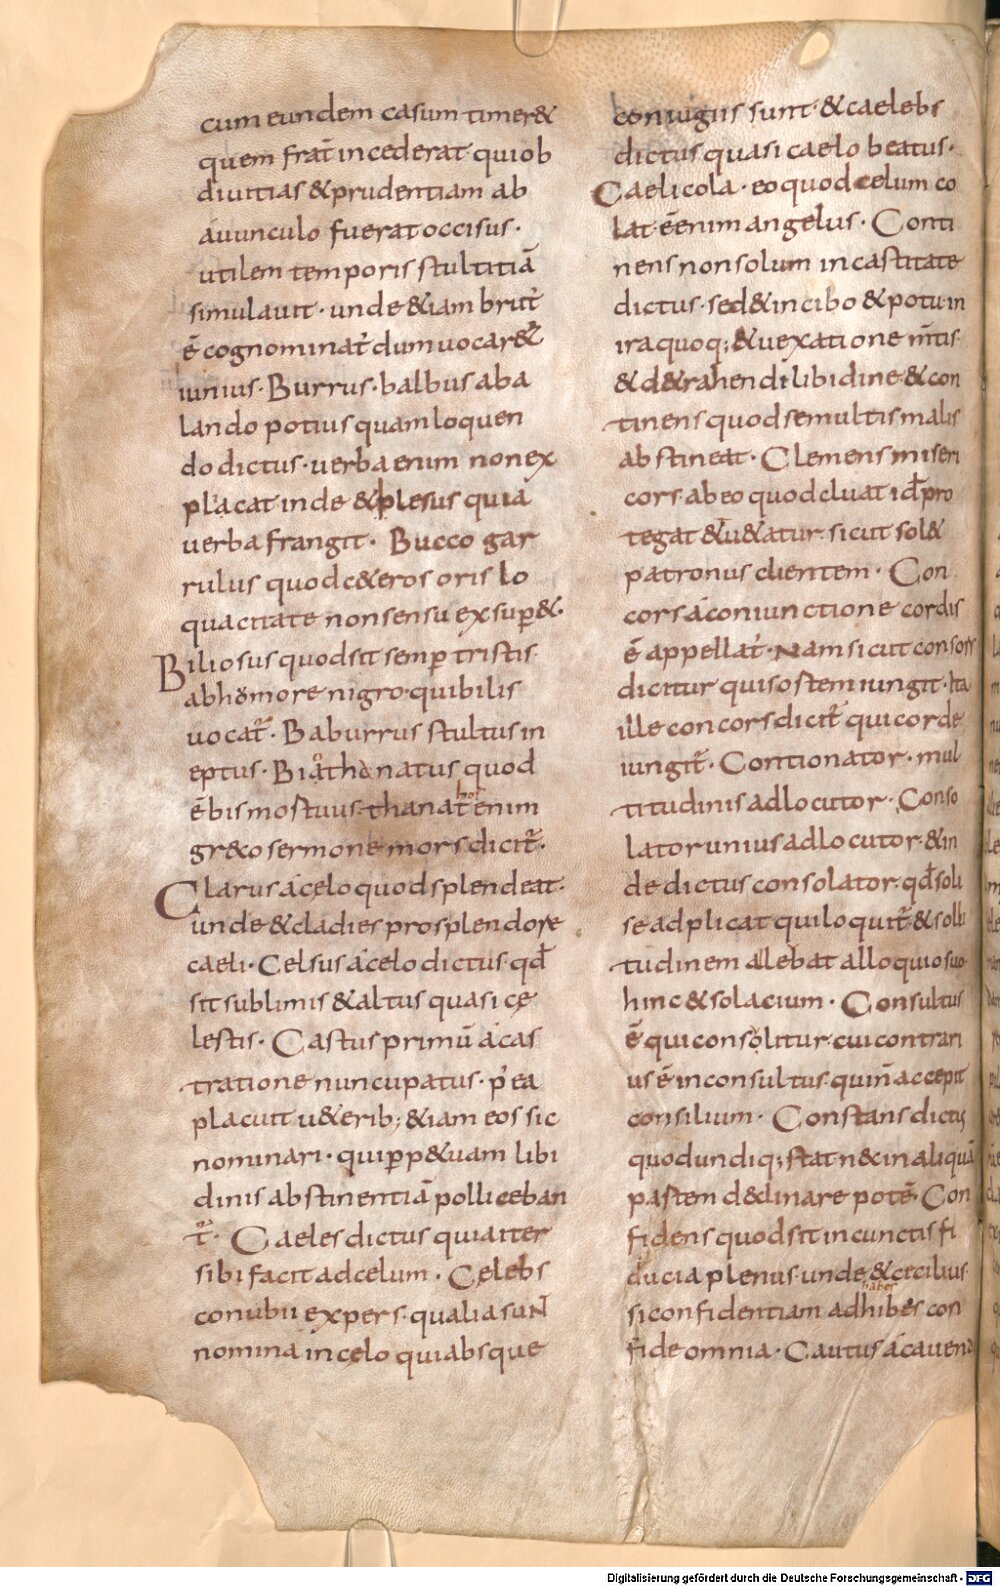 cum eundem casum timer&
quem frat̄ incederat quiob
diuitias &prudentiam ab
auunculo fuerat occisus·
utilem temporis stultitiā
simulauit· unde &iam brut᷎
ē cognominat᷎ dum uocar&
iunius· Burrus· balbus aba
lando potius quam loquen
do dictus· uerba enim non ex
placat inde &plesus quia
uerba frangit· Bucco gar
rulus quod c&eros oris lo
quacitate non sensu exsup̄&·
Biliosus quod sit semp̄ tristis·
ab homore nigro· qui bilis
uocat᷎· Baburrus stultus in
eptus· Biathanatus quod
ē bis mostuus· thanat᷎ enim
hos
greco sermone mors dicit᷎·
Clarus a celo quod splendeat·
unde &cladies pro splendore
caeli· Celsus a celo dictus· qđ
sit sublimis &altus quasi cę
lestis· Castus primū a cas
tratione nuncupatus· p᷎ ea
placuit u&erib; &iam eos sic
nominari· qui p̄p&uam libi
dinis abstinentiā polliceban
t᷎· Caeles dictus quia iter
sibi facit ad celum· Celebs
conubii expers· qualia sunt
nomina in celo qui absque
coniugiis sunt· &caelebs
dictus quasi caelo beatus·
Caelicola· eo quod celum co
lat· ēenim angelus· Conti
nens non solum in castitate
dictus· sed &in cibo &potu in
ira quoq; &uexatione m̄tis·
&d&rahendi libidine &con
tinens quod se multis malis
abstineat· Clemens miseri
cors· ab eo quod cluat id᷎ pro
tegat &u&atur· sicut sol&
patronus clientem· Con
cors a coniunctione cordis
ē appellat᷎· Nam sicut consors
dicitur qui sostem iungit· ita
ille concors dicit᷎ qui corde
iungit᷎· Contionator· mul
titudinis adlocutor· Conso
lator unius adlocutor· &in
de dictus consolator· qđ soli
se adplicat qui loquit᷎· &solli
tudinem allebat alloquio suo·
hinc &solacium· Consultus
ē qui consolitur· cui contrari
us ē inconsultus· qui n̄ accepit
consilium· Constans dictus
quod undiq; stat n& in aliquā
pastem d&clinare potē· Con
fidens quod sit in cunctis fi
ducia plenus· unde &cecilius·
haber
si confidentiam adhibes con
fide omnia· Cautus a cauend
Digitalisierung gefördert durch die Deutsche Forschungsgemeinschaft - DFG